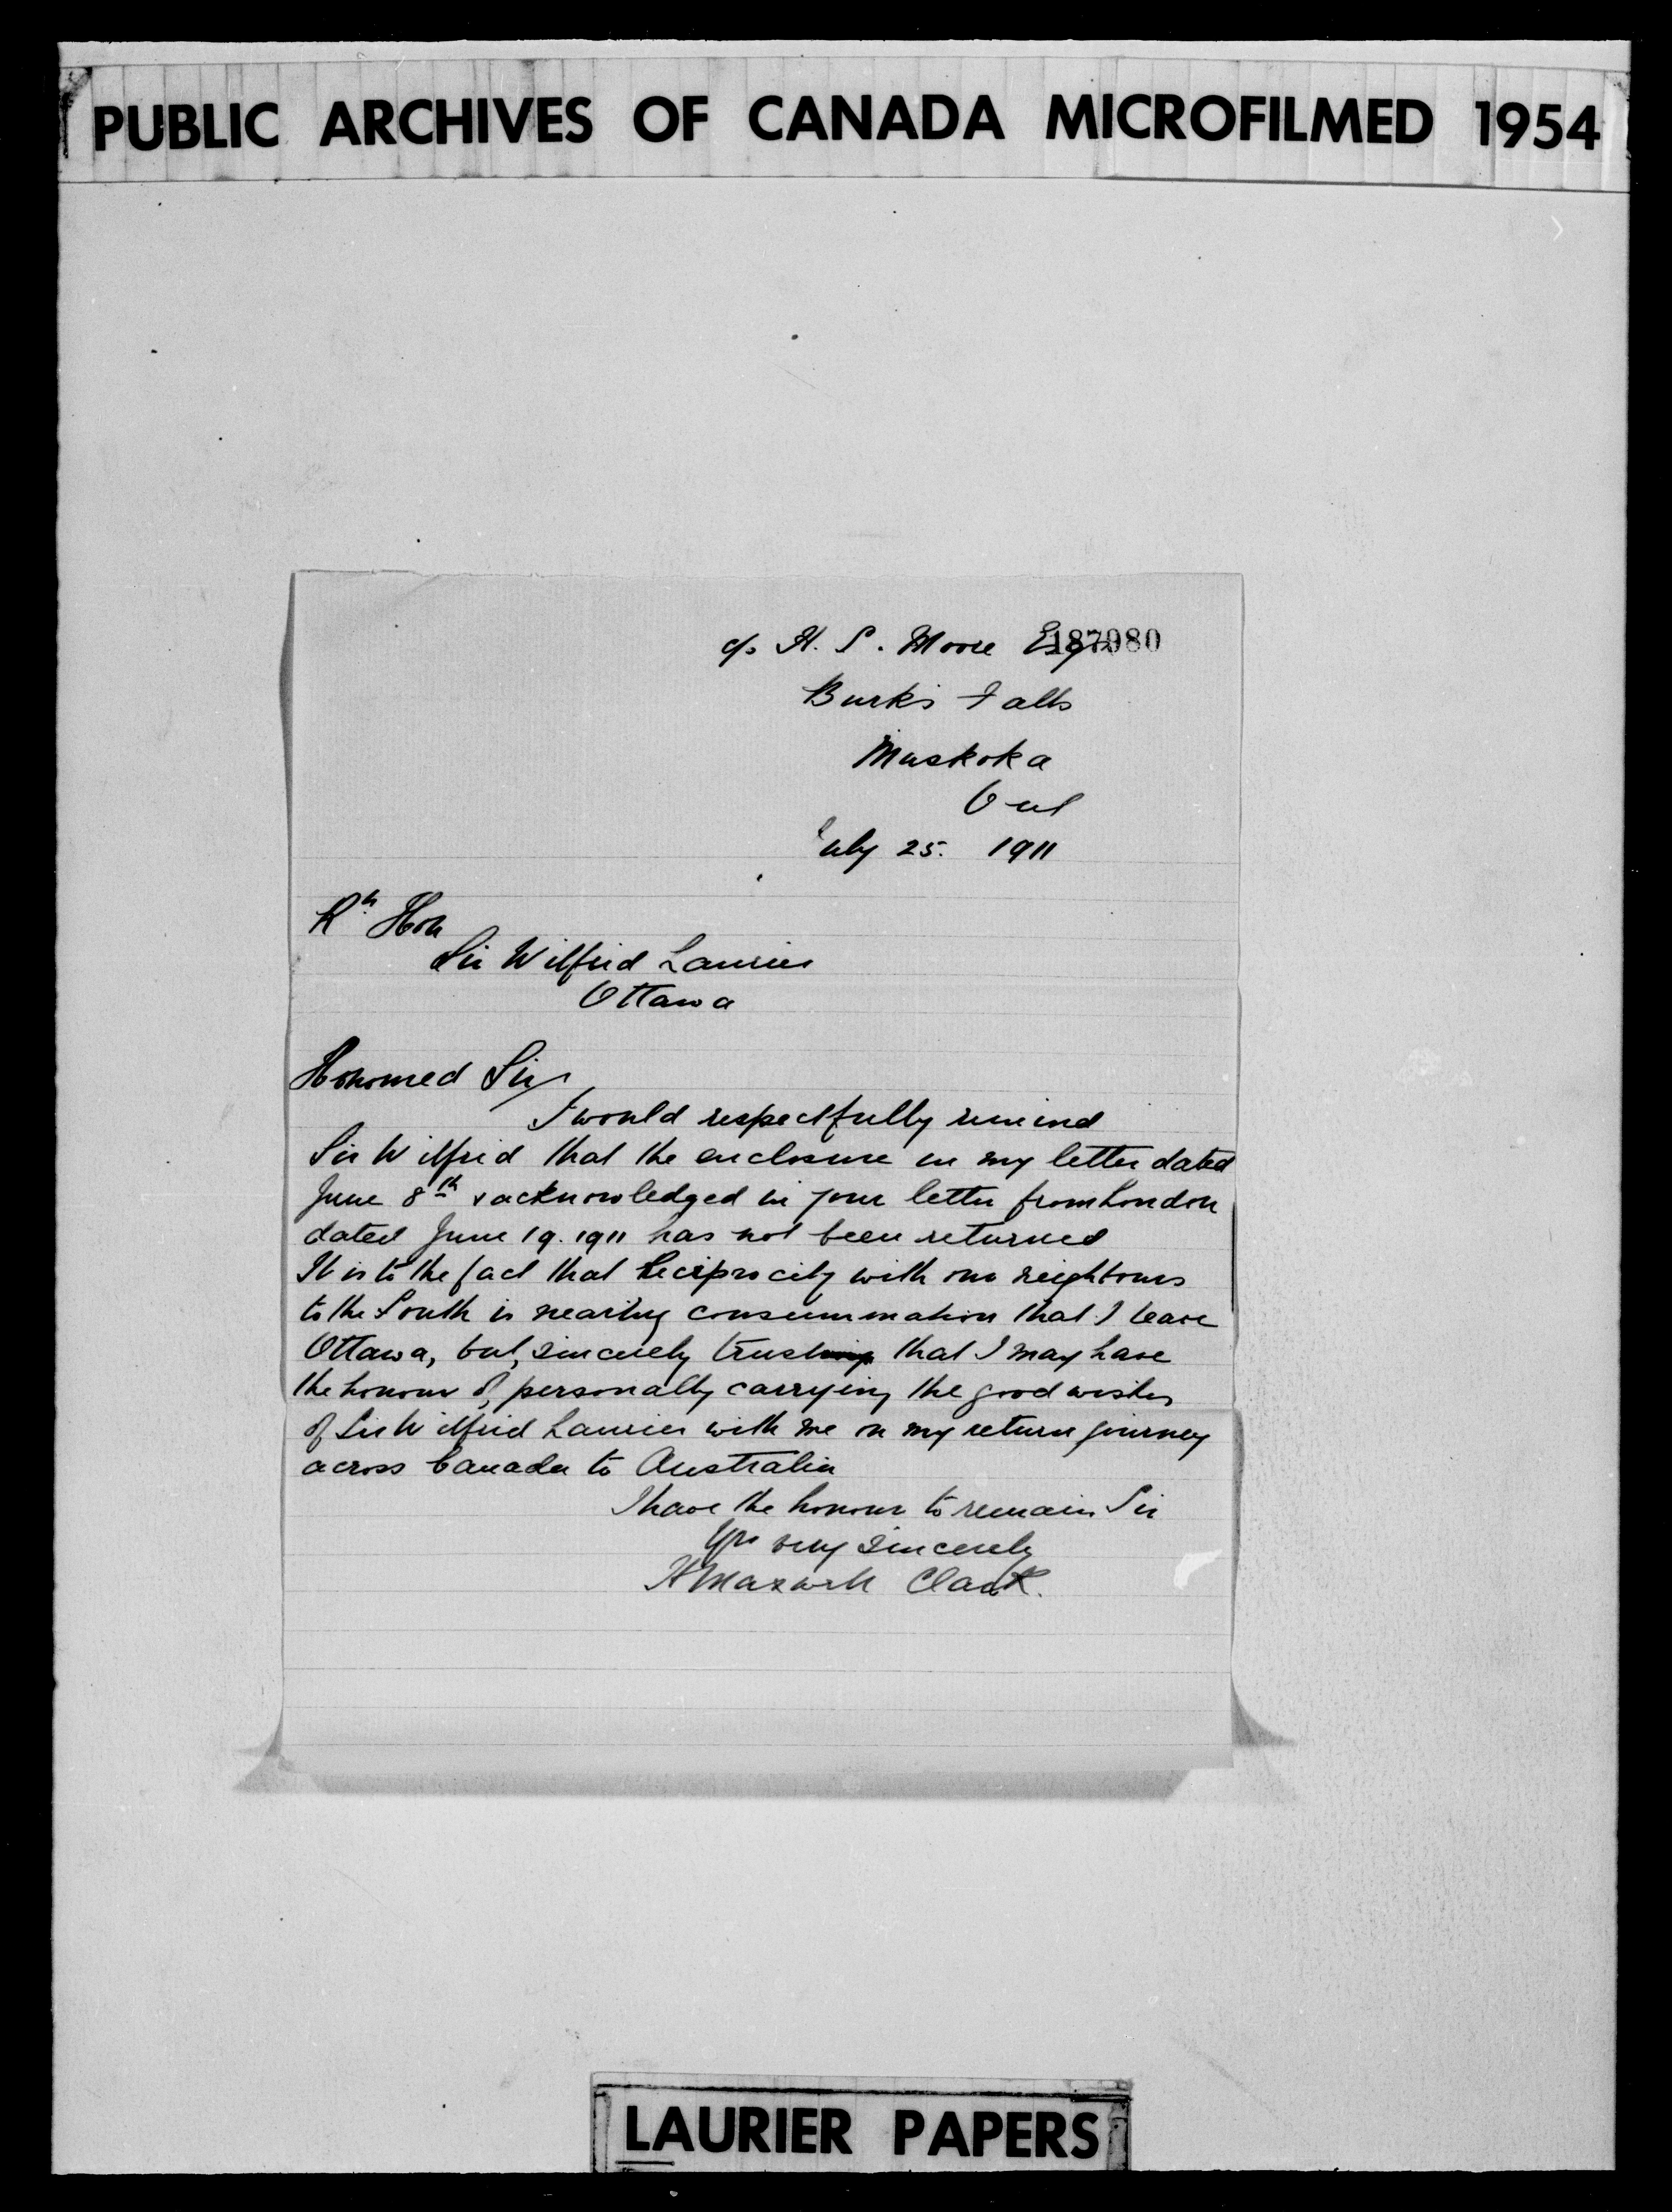 PUBLIC ARCHIVES OF CANADA MICROFILMED 1954
c/o H. S. Moore Esq 187980
Burks Falls
Muskoka
Ont
July 25. 1911
Rt Hon
Sir Wilfrid Laurier
Ottawa
Honoured Sir,
I would respectfully remind
Sir Wilfrid that the enclosure in my letter dated
June 8th & acknowledged in your letter from London
dated June 19. 1911 has not been returned
It is to the fact that Reciprocity with our neighbours
to the South is nearing consummation that I leave
Ottawa, but, sincerely trust that I may have
the honour of, personally carrying the good wishes
of Sir Wilfrid Laurier with me on my return journey
across Canada to Australia
I have the honour to remain Sir
Yrs very sincerely
H Maxwell Clark.
LAURIER PAPERS